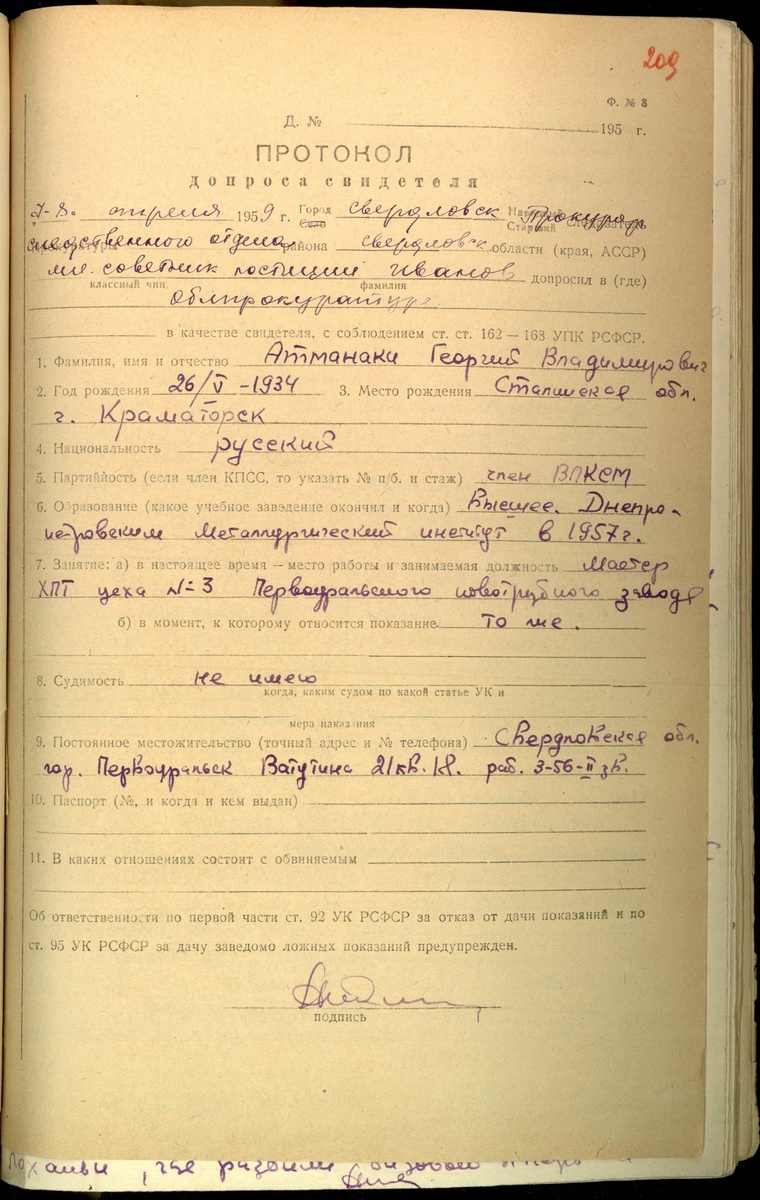 209
Ф. № 8
Д. № 195 г.
ПРОТОКОЛ
допроса свидетеля
7-8. апреля 1959 г. Город Свердловск Прокурор
Село Старший следователь
следственного отдела района Свердловск. области (края, АССР)
мл. советник юстиции Иванов допросил в (где)
классный чин фамилия
Облпрокуратуре
в качестве свидетеля, с соблюдением ст. ст. 162 — 168 УПК РСФСР.
1. Фамилия, имя и отчество Атманаки Георгий Владимирович
2. Год рождения 26/V -1934 3. Место рождения Сталинская обл.
г. Краматорск
4. Национальность русский
5. Партийность (если член КПСС, то указать № п/б. и стаж) член ВЛКСМ
6. Образование (какое учебное заведение окончил и когда) Высшее. Днепро-
петровский Металлургический институт в 1957г.
7. Занятие: а) в настоящее время — место работы и занимаемая должность Мастер
ХПТ цеха №3 Первоуральского новотрубного завода
б) в момент, к которому относится показание то же.
8. Судимость не имею
когда, каким судом по какой статье УК и
мера наказания
9. Постоянное местожительство (точный адрес и № телефона) Свердловская обл.
гор. Первоуральск Ватутина 21 кв. 18. раб. 3-56-II зв.
10. Паспорт (№, и когда и кем выдан)
11. В каких отношениях состоит с обвиняемым
Об ответственности по первой части ст. 92 УК РСФСР за отказ от дачи показаний и по
ст. 95 УК РСФСР за дачу заведомо ложных показаний предупрежден.
подпись
, где разбили